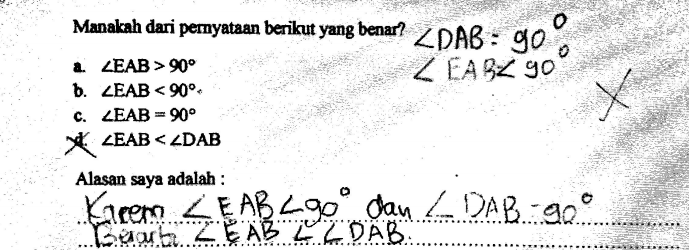 Manakah dari pernyataan berikut yang benar?
∠DAB = 90°
∠EAB < 90°
a. ∠EAB > 90°
b. ∠EAB < 90°
c. ∠EAB = 90°
d. ∠EAB < ∠DAB
Alasan saya adalah :
Karena ∠EAB < 90° dan ∠DAB = 90°
Berarti ∠EAB < ∠DAB.